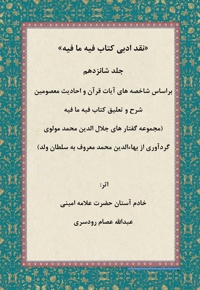 «نقد ادبی کتاب فیه ما فیه»
جلد شانزدهم
براساس شاخصه های آیات قرآن و احادیث معصومین
شرح و تعلیق کتاب فیه ما فیه
(مجموعه گفتار های جلال الدین محمد مولوی
گردآوری از بهاءالدین محمد معروف به سلطان ولد)
اثر:
خادم آستان حضرت علامه امینی
عبدالله عصام رودسری